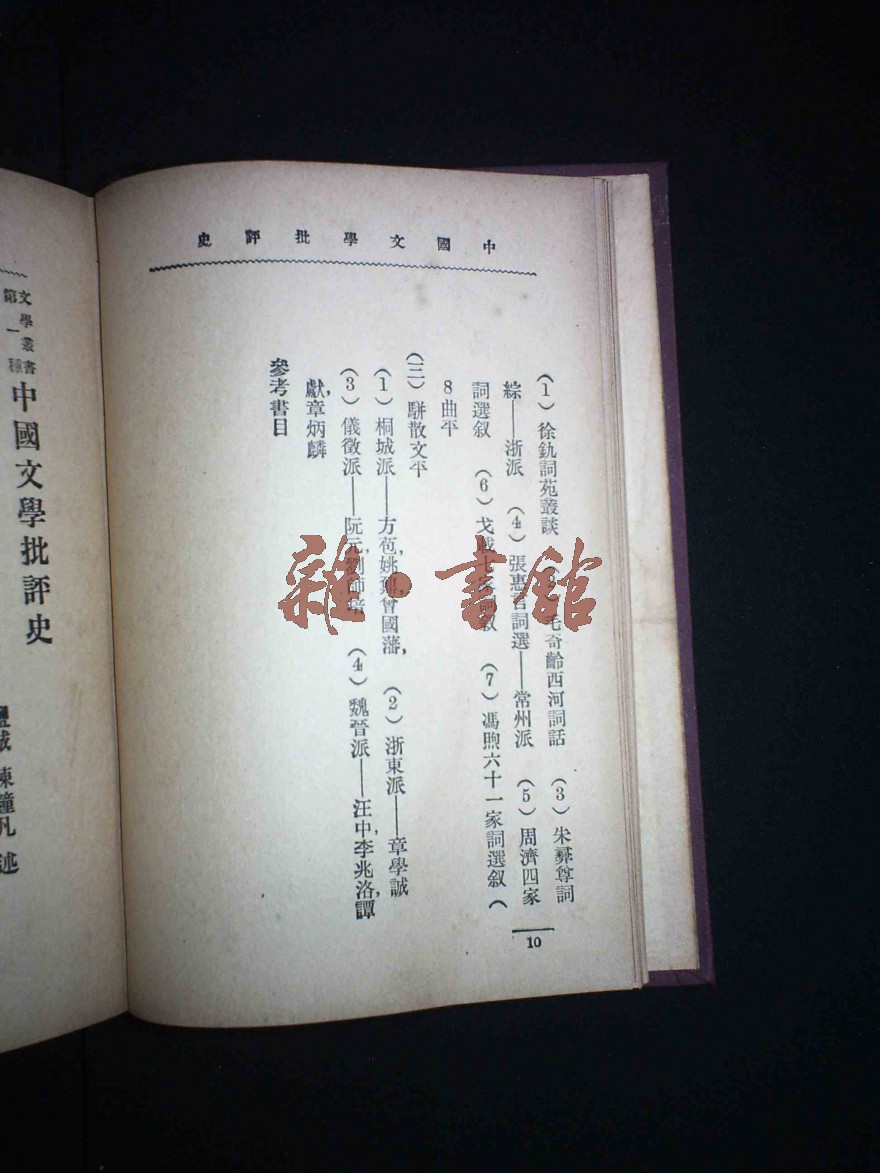 中國文學批評史
(1)徐釚詞苑叢談 毛奇齡西河詞話 (3)朱彝尊詞
綜——浙派 (4)張惠言詞選——常州派 (5)周濟四家
詞選叙 (6)戈載七家詞叙 (7)馮煦六十一家詞選叙 (
8曲平
(三)駢散文平
(1)桐城派——方苞,姚鼐,曾國藩, (2)浙東派——章學誠
(3)儀徵派——阮元,劉師培 (4)魏晉派——汪中,李兆洛,譚
獻,章炳麟
參考書目
10
文學叢書
第一種
中國文學批評史
鹽城 陳鐘凡 述
雜·書館